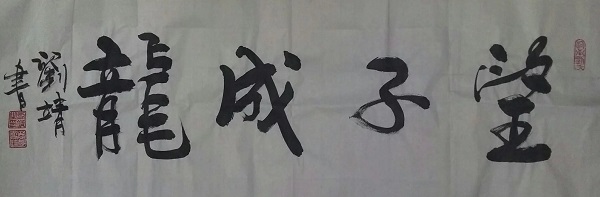 望子成龍
劉靖
書